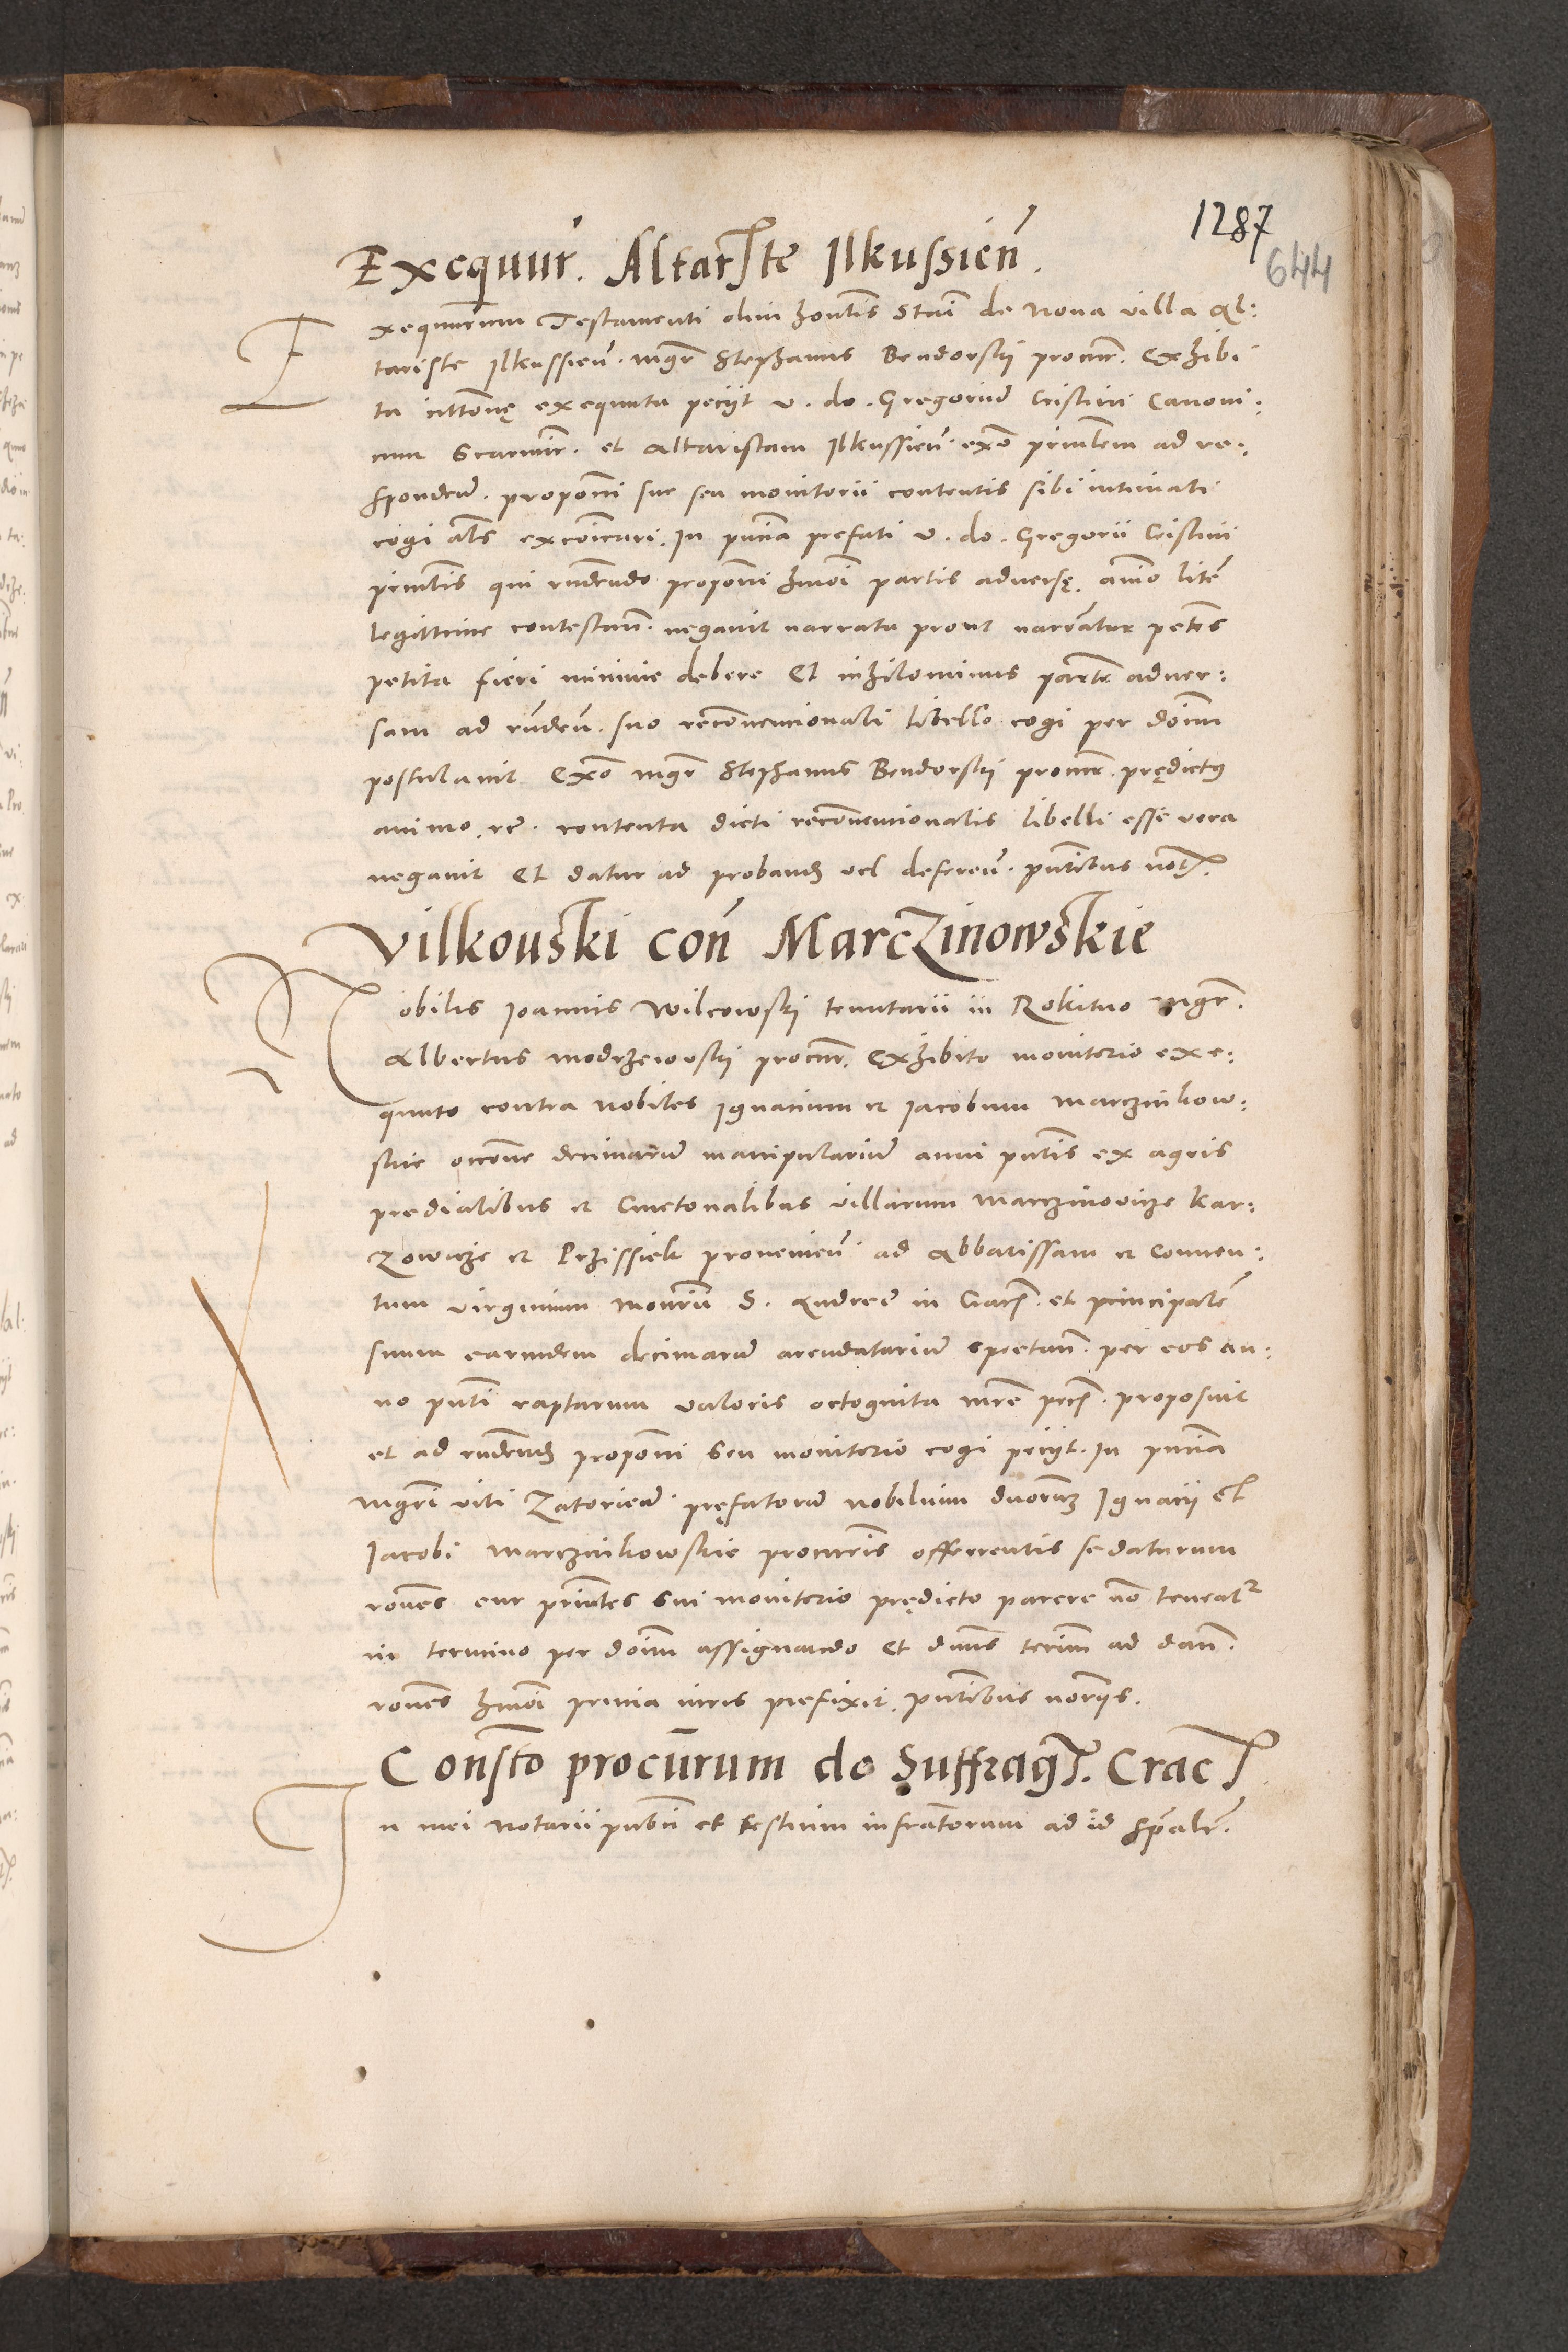 1287
644
Exequut. Altariste Ilkussien.
Exequutorum Testamenti olim honlis Stani de Nova villa Al:
tariste Ilkussien. mgr Stephanus Bendorski procur. Exhibi
ta cittone exequuta peciit v. do. Gregoriu Cristini Canoni:
cum Scarmir. et Altaristam Ilkussien. exo prinlem ad re:
sponden. proponi sue seu monitorii contentis sibi intimati
cogi als excoicari. In pntia prefati v. do. Gregorii Cristini
prinlis qui rndendo proponi hmoi partis adverse. aio lite
legittime contestan. negavit narrata prout narrantur petens
petita fieri minime debere Et nihilominus parte adver:
sam ad rnden. suo reconvencionali libello cogi per doim
postulavit Exo mgr Stephanus Bendorski procur. predictus
animo. re. contenta dicti reconvencionalis libelli esse vera
negavit Et datur ad proband vel deferen. pntibus not.
Vilkouski con Marczinowskie
Nobilis Joannis Wilcowski tenutarii in Rokitno mgr.
Albertus modrzewski procur. Exhibito monitorio exe:
quuto contra nobiles Ignacium et Jacobum marczinkow:
skie occone decimaru manipulariu anni pntis ex agris
predialibus et Cmetonalibus villarum marczinovicze kar:
zowicze et Przissiek provenien. ad Abbatissam et Conven:
tum virginum monrii S. Andree in Crac. et principale
suum earundem decimaru arendatarium spectan. per eos an:
no pnti raptarum valoris octoginta mre pec. proposuit
et ad rndend proponi seu monitorio cogi peciit. In pntia
mgri viti Zatoriea. prefatoru nobilium duorum Ignacii et
Jacobi marczinkowskie procuris offerentis se daturum
rones cur prinles sui monitorio predicto parere no teneatur
in termino per doim assignando Et dnus terim ad dan.
rones hmoi prima iuris prefixit. pntibus noriis.
Consto procurum do Suffrag. Crac
In mei notarii publi et testium infratorum ad id spealr.